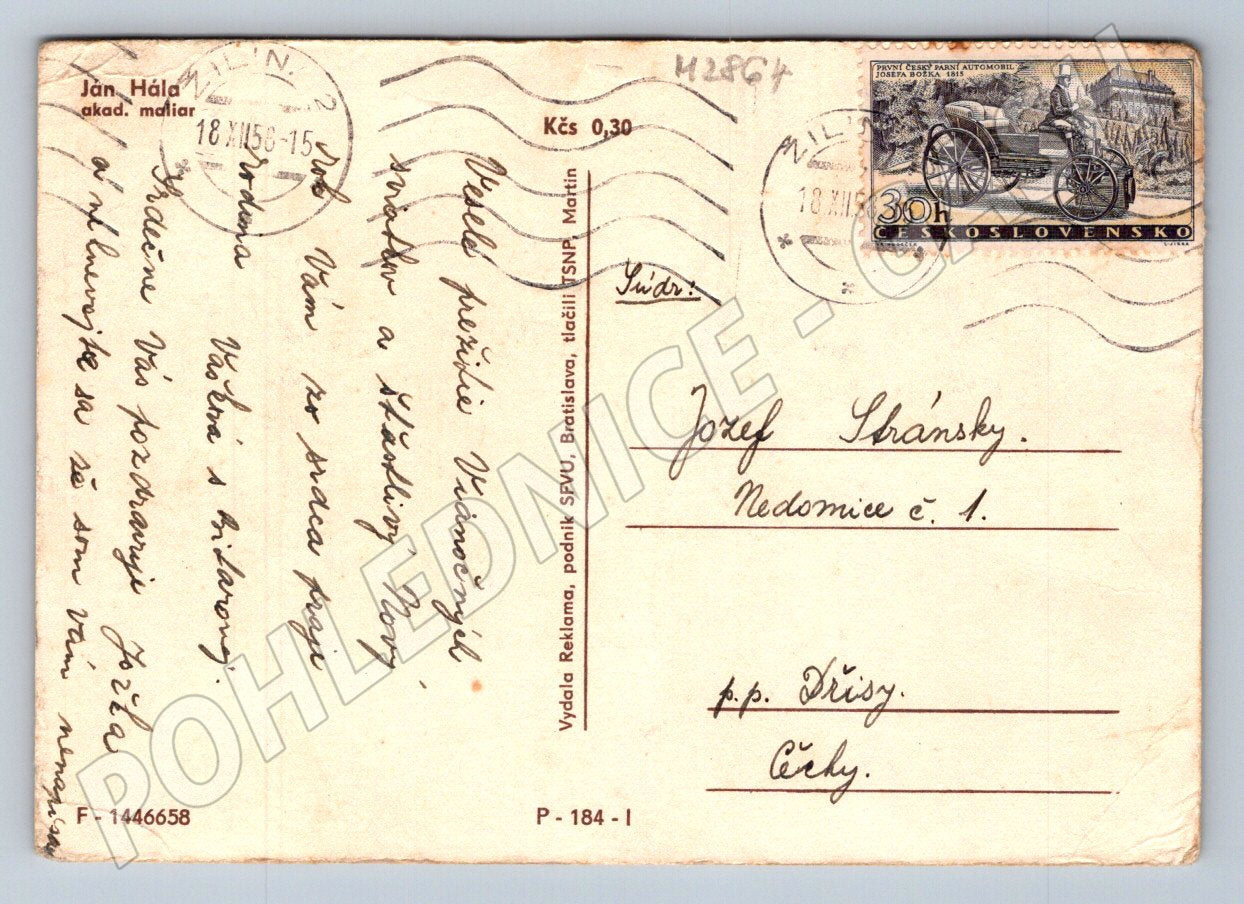 Ján Hála
akad. maliar
ŽILINA 2
18.XII.58-15
M2864
Kčs 0,30
PRVNÍ ČESKÝ PARNÍ AUTOMOBIL
JOSEFA BOŽKA 1815
30h
ČESKOSLOVENSKO
ŽILINA
18.XII.58
Veselé prežitie Vianočných
sviatkov a šťastlivý Nový
rok Vám zo srdca praje
rodina Vašková s
Srdečne Vás pozdravuje Jožka
a nehnevajte sa že som vám nenapísal
Vydala Reklama, podnik SFVU, Bratislava, tlačili TSNP, Martin
Súdr:
Jozef Stránsky.
Nedomice č. 1.
p.p. Dřisy.
Čechy.
F - 1446658
P - 184 - I
POHLEDNICE - CZ